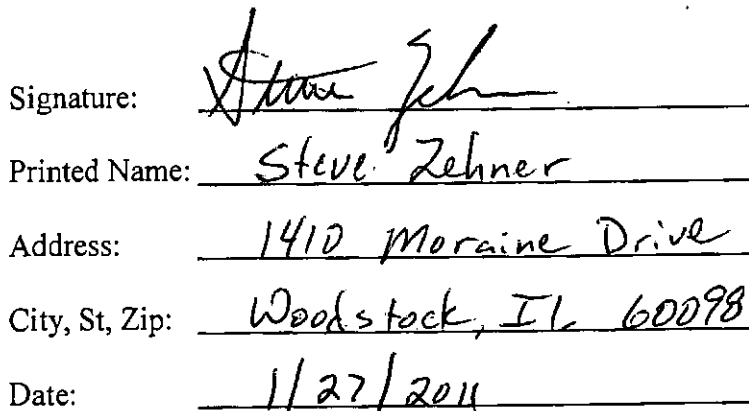 Signature: Steve Zehner
Printed Name: Steve Zehner
Address: 1410 Moraine Drive
City, St, Zip: Woodstock, IL 60098
Date: 1/27/2011